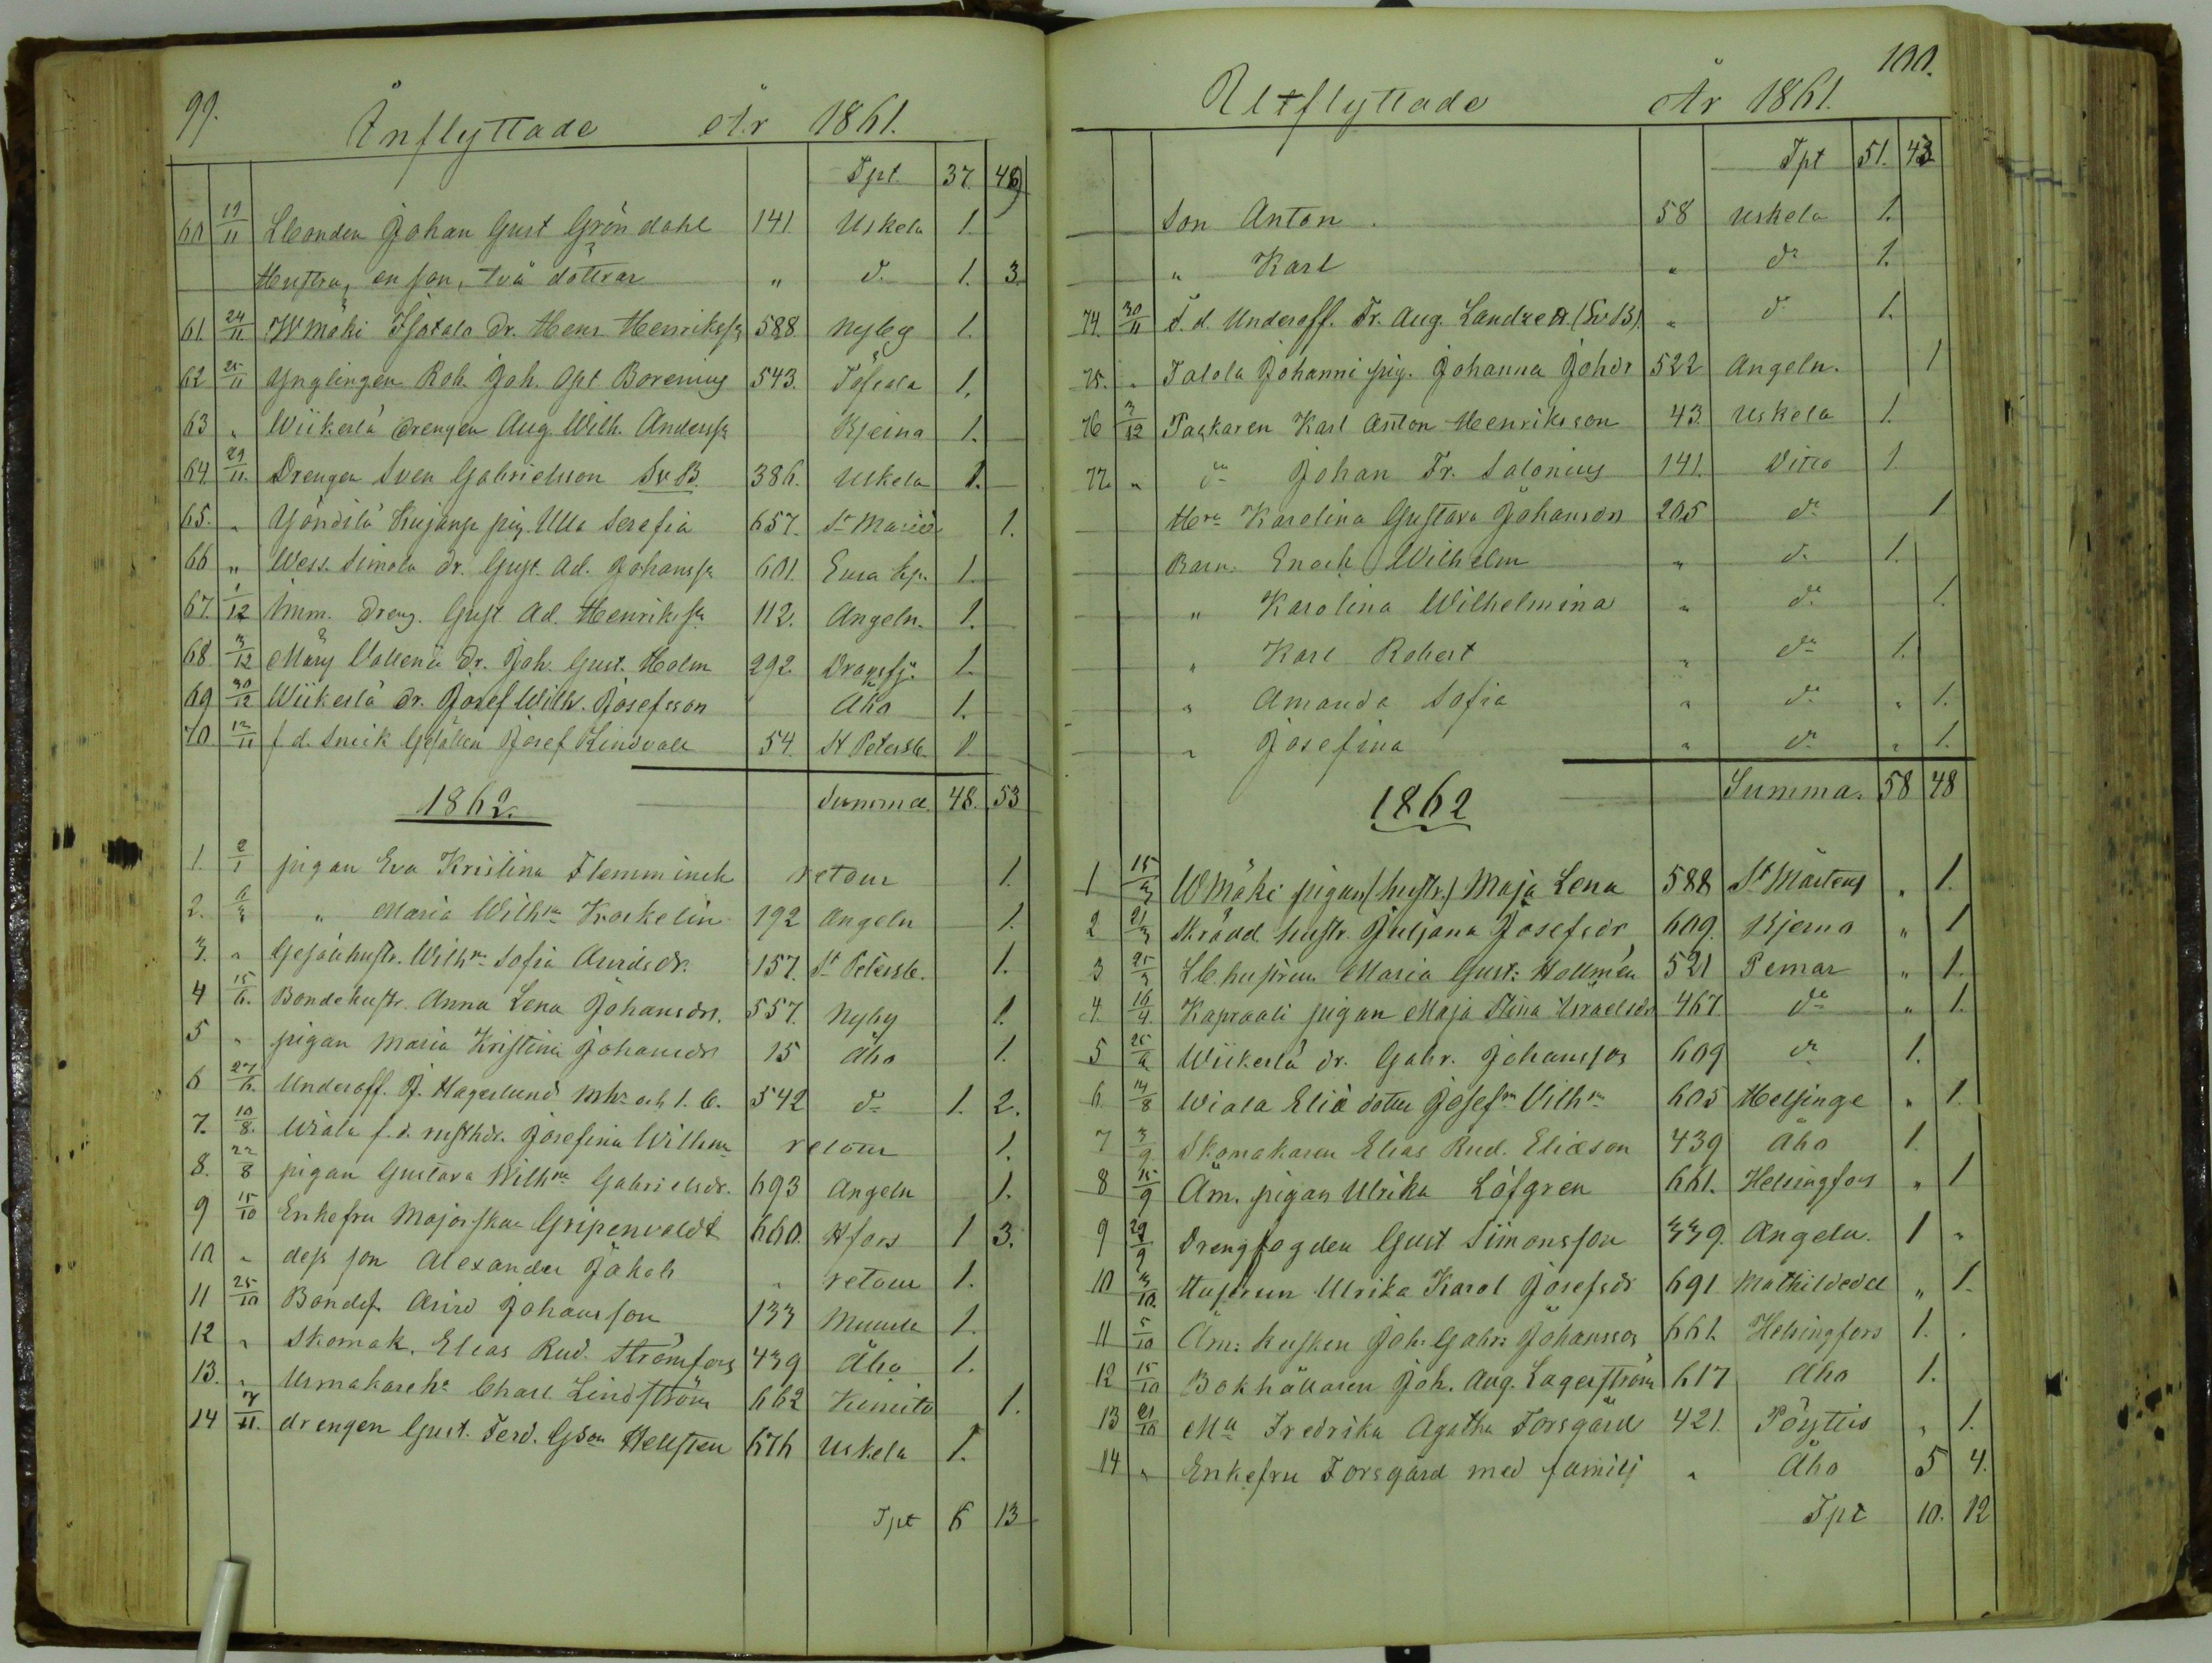 99.
Inflyttade År 1861.
Tpt. 37. 48
60 19/11 Lbonden Johan Gust Gröndahl 141 Uskela 1.
Hustru, en son, två döttrar " d:o 1. 3
61. 24/11 Wmäki Isotalo dr. Henr Henrikss 588. Nyby 1.
62 25/11 Ynglingen Rob. Joh. Apl Borenius 543. Töfsala 1.
63 " Wiikerlä drengen Aug. Wilh. Anderss Kjeina 1.
64. 29/11. Drengen Sven Gabrielsson Sv B. 386. Uskela 1.
65. " Yöntilä Kujanp pig. Ulla Serefia 657. St Marie 1.
66 " Wess. Simola dr. Gust. Ad. Johanss 601. Eura kp. 1.
67. 1/12 Imm. dreng. Gust Ad. Henrikss 112. Angeln. 1.
68. 3/12 Marj Vallenä dr. Joh. Gust. Holm 292. Dragsfj. 1.
69 30/12 Wiikerlä dr. Josef Wilh. Josefsson Åbo 1.
70. 12/11 f d. Snick Gesällen Josef Lindvall 54. St Petersb. 1.
Summa. 48. 53
1862.
1. 2/1 pigan Eva Kristina Flemminck retour 1.
2. " Maria Wilh:na Krockelin 192 Angeln 1.
3. " Gesällhustr. Wilh:na Sofia Arvidsdr. 157. St Petersb. 1.
4 15/6. Bondehustr. Anna Lena Johansdr. 557. Nyby 1.
5 " pigan Maria Kristina Johansdr 15 Åbo 1.
6 27/6. Underoff. J. Hagerlund m h:u och 1. b. 542 d:o 1. 2.
7. 10/8. Wiala f. d. rusthdr. Josefina Wilhna retour 1.
8. 22/8 pigan Gustava Wilh:na Gabrielsdr. 693 Angeln 1.
9 15/10 Enkefru Majorskan Gripenvaldt 660. Hfors 1 3.
10 " dess son Alexander Jakob " retour 1.
11 25/10 Bondes. Arvid Johansson 133 Muurla 1.
12 " Skomak. Elias Rud. Strömfors 439 Åbo 1.
13. " Urmakareh:u Charl. Lindström 662 Kimito 1.
14 7/11. drengen Gust. Ferd. Gson Hellsten 676 Uskela 1.
Tpt 6 13
100.
Utflyttade År 1861.
Tpt 51. 43
Son Anton 58 Uskela 1.
" Karl " d:o 1.
74. 30/11 F. d. Underoff. Fr. Aug. Landzett (Sv B). " d:o 1.
75. " Talola Johanni pig. Johanna Johdr 522 Angeln. 1
76 3/12 Packaren Karl Anton Henriksson 43. Uskela 1.
77. " d:o Johan Fr. Salonius 141. Ditto 1.
H:ru Karolina Gustava Johansdr 205 d:o 1
Barn. Enoch Wilhelm " d:o 1.
" Karolina Wilhelmina " d:o 1.
" Karl Robert " d:o 1.
" Amanda Sofia " d:o " 1.
" Josefina " d:o " 1.
Summa. 58 48
1862
1 15/3 Wmäki pigan (hustr.) Maja Lena 588 St Mårtens " 1.
2 21/3 Skrädd hustr. Juljana Josefsdr 609. Bjerno " 1
3 25/3 Lb. hustrun Maria Gust: Hollmén 521 Pemar " 1.
4. 16/4. Kapraali pigan Maja Stina Israelsdr 467 d:o " 1.
5 Wiikerlä dr. Gabr. Johansson 609 d:o 1.
6. 14/8 Wiala Eliä dotter Josef:na Vilh:na 605 Helsinge " 1.
7 3/9 Skomakaren Elias Rud. Eliesson 439 Åbo 1.
8 15/9 Äm. pigan Ulrika Löfgren 661. Helsingfors " 1
9 29/9 Drengfogden Gust Simonsson 339. Angeln. 1 "
10 3/10. Hustrun Ulrika Karol Josefsdr 691 Mathildedal " 1.
11 5/10 Äm: kusken Joh. Gabr: Johansson 661. Helsingfors 1. .
12 15/10 Bokhållaren Joh. Aug. Lagerström 617 Åbo 1.
13 21/10 M:ll Fredrika Agatha Forsgård 421. Pöyttis " 1.
14 " Enkefru Forsgård med familj " Åbo 5 4.
Tpt 10. 12